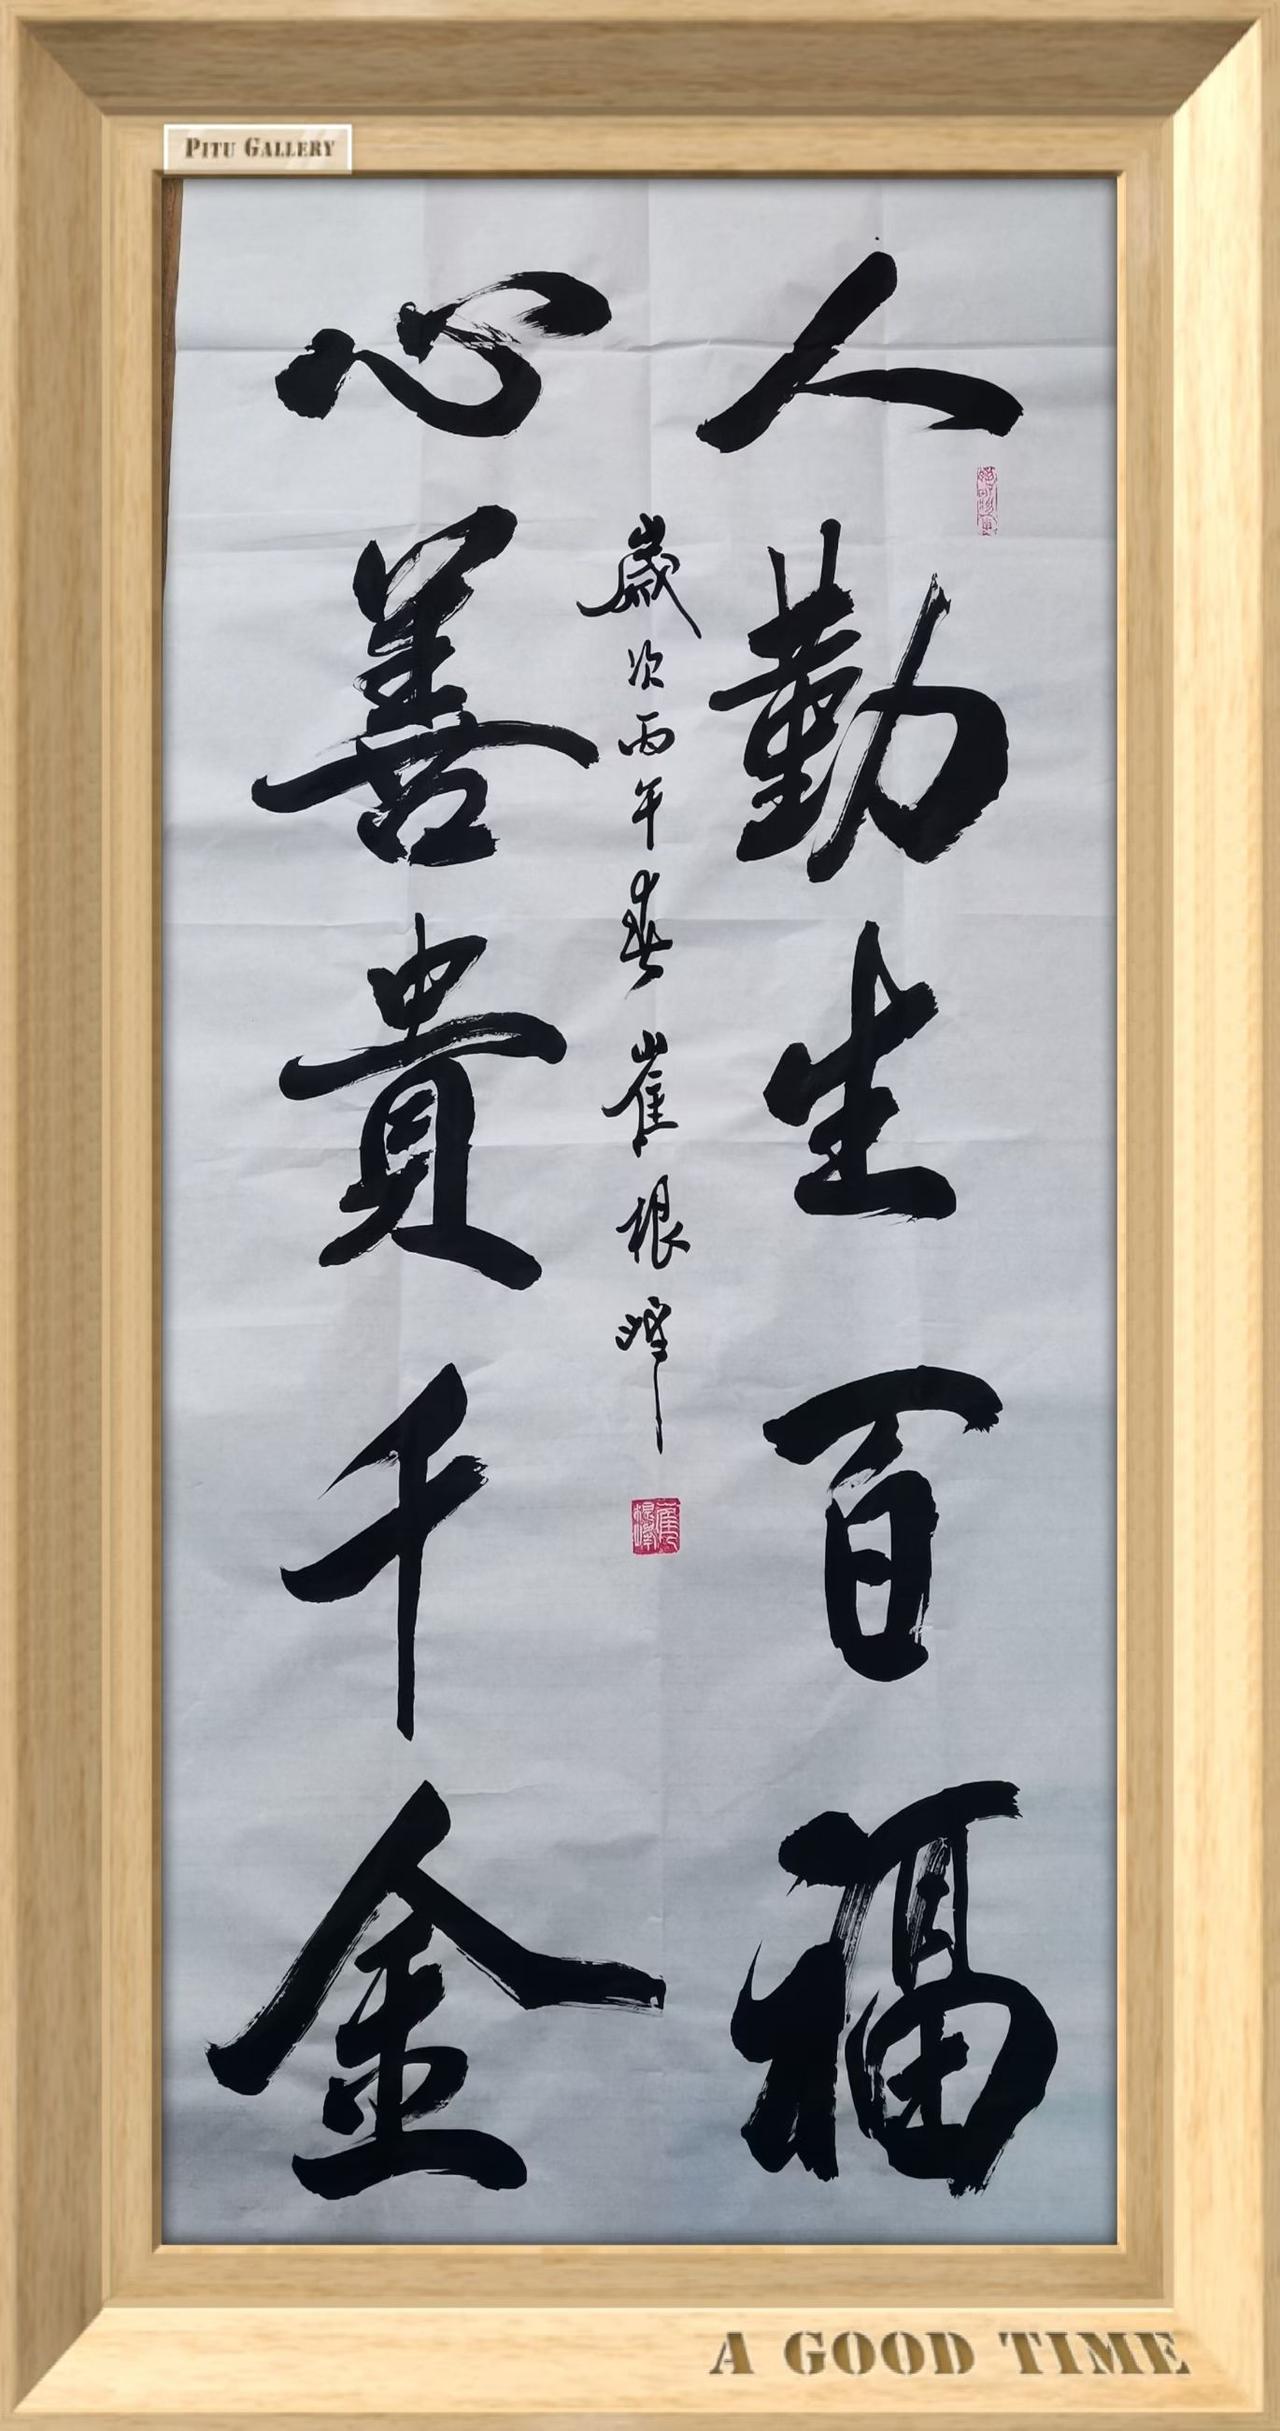 PITU GALLERY
人勤生百福
歲次丙午春 崔根峰
崔根峰
心善貴千金
A GOOD TIME